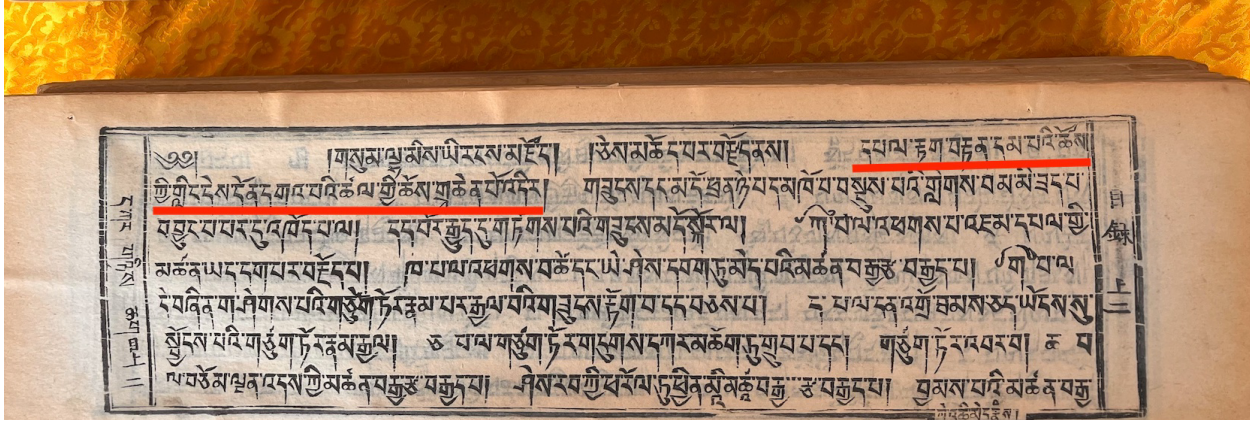 ༄༅། །གསུམ་ལྡུམིས་ཡི་རངས་མཛོད། །ཅེས་མཆོད་པར་བརྗོད་ནས། དཔལ་རྟག་བརྟན་དམ་པའི་ཆོས་
ཀྱི་གླིང་དེས་དོན་དགའ་བའི་ཚལ་གྱི་ཆོས་གྲྭ་ཆེན་པོ་འདིར། གཟུངས་དང་མདོ་ཕྲན་ཉེ་བར་མཁོ་བ་བསྡུས་པའི་གླེགས་བམ་མི་ཟད་པ་
འབྱུང་བ་པར་དུ་འཁོད་པ་ལ། དང་པོར་རྒྱུད་དུ་གཏོགས་པའི་གཟུངས་མདོ་སྐོར་ལ། ཀ པ་ལ་འཕགས་པ་འཇམ་དཔལ་གྱི་
མཚན་ཡང་དག་པར་བརྗོད་པ། ཁ པ་ལ་འཕགས་པ་ཚེ་དང་ཡེ་ཤེས་དཔག་ཏུ་མེད་པའི་མཚན་བརྒྱ་རྩ་བརྒྱད་པ། ག པ་ལ་
དེ་བཞིན་གཤེགས་པའི་གཙུག་ཏོར་རྣམ་པར་རྒྱལ་བའི་གཟུངས་རྟོག་པ་དང་བཅས་པ། ང པ་ལ་ངན་འགྲོ་ཐམས་ཅད་ཡོངས་སུ་
སྦྱོངས་པའི་གཙུག་ཏོར་རྣམ་རྒྱལ། ཅ པ་ལ་གཙུག་ཏོར་གདུགས་དཀར་མཆོག་ཏུ་གྲུབ་པ་དང། གཙུག་ཏོར་འབར་བ། ཆ པ་
ལ་བཅོམ་ལྡན་འདས་ཀྱི་མཚན་བརྒྱ་རྩ་བརྒྱད་པ། ཤེས་རབ་ཀྱི་ཕ་རོལ་ཏུ་ཕྱིན་མའི་མཚན་བརྒྱ་རྩ་བརྒྱད་པ། བྱམས་པའི་མཚན་བརྒྱ་
དཀར་ཆག
目錄
上二